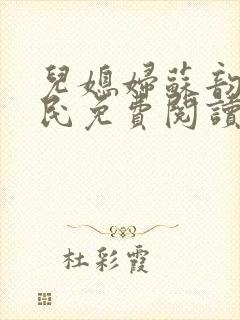 兒媳婦蘇韵
民免費閱讀
杜彩霞